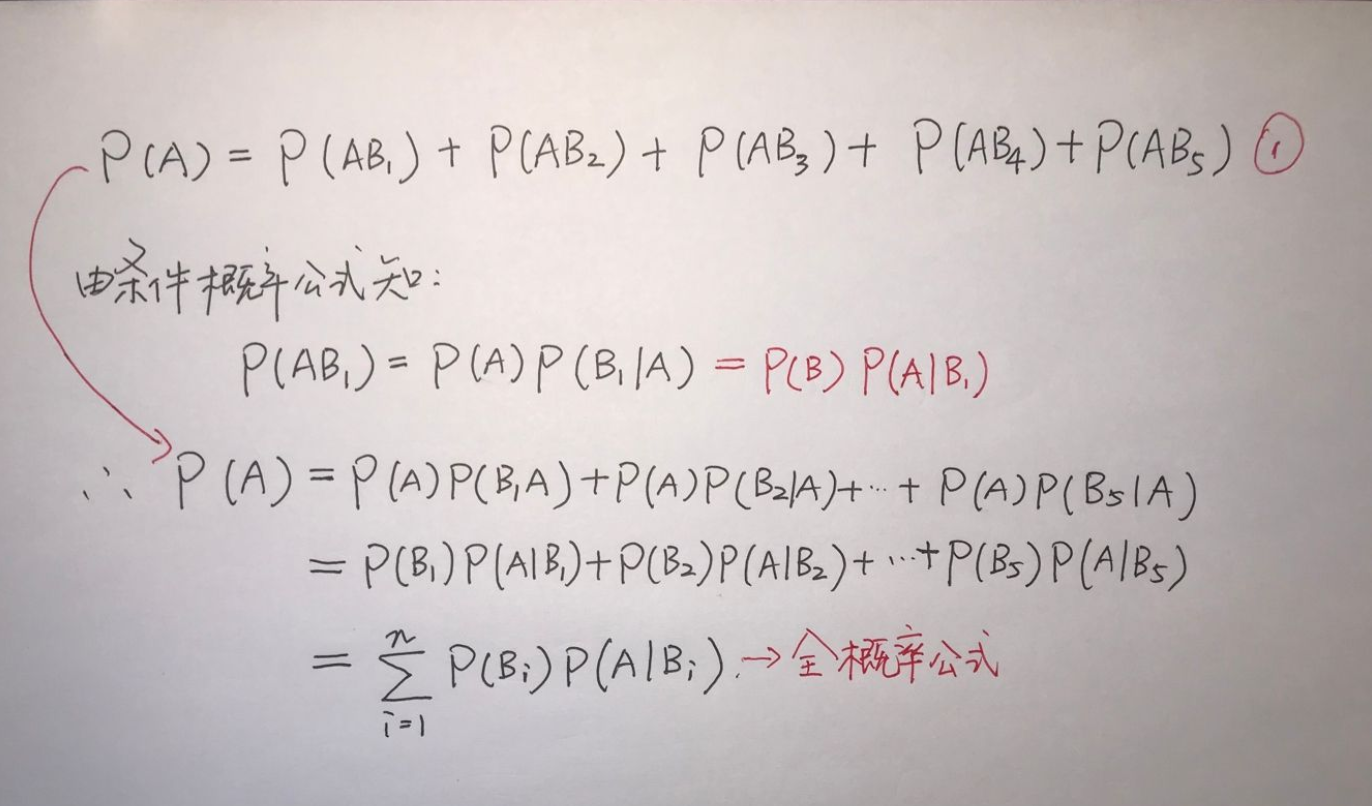 P(A) = P(AB₁) + P(AB₂) + P(AB₃) + P(AB₄) + P(AB₅) ①
由条件概率公式知:
P(AB₁) = P(A)P(B₁|A) = P(B)P(A|B₁)
∴ P(A) = P(A)P(B₁A) + P(A)P(B₂|A) + ... + P(A)P(B₅|A)
= P(B₁)P(A|B₁) + P(B₂)P(A|B₂) + ... + P(B₅)P(A|B₅)
= ∑ᵢ₌₁ⁿ P(Bᵢ)P(A|Bᵢ). → 全概率公式